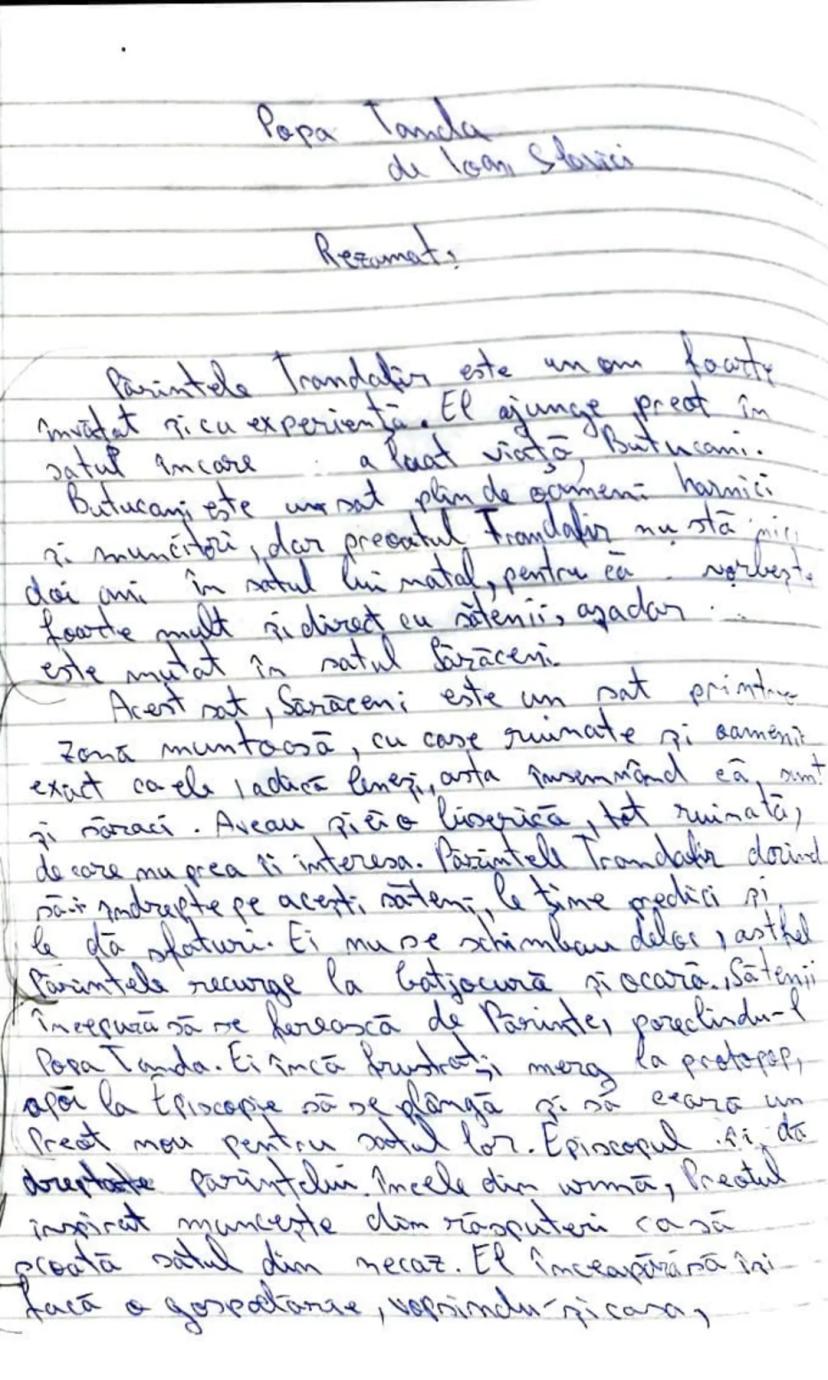 Popa Tanda
de Ioan Slavici
Rezumat:
Părintele Trandafir este un om foarte
învățat și cu experiență. El ajunge preot în
satul în care a luat viață, Butucani.
Butucani este un sat plin de oameni harnici
și muncitori, dar preoatul Trandafir nu stă nici
doi ani în satul lui natal, pentru că vorbește
foarte mult și direct cu sătenii, așadar
este mutat în satul Sărăceni.
Acest sat, Sărăceni este un sat printr-o
zonă muntoasă, cu case ruinate și oamenii
exact ca ele, adică leneși, asta însemnând că sunt
și săraci. Aveau și ei o biserică, tot ruinată,
de care nu prea îi interesa. Părintele Trandafir dorind
să-i îndrepte pe acești săteni, le ține predici și
le dă sfaturi. Ei nu se schimbau deloc, astfel
Părintele recurge la batjocură și ocară. Sătenii
începură să se ferească de Părinte, poreclindu-l
Popa Tanda. Ei încă frustrați merg la protopop,
apoi la Episcopie să se plângă și să ceară un
Preot nou pentru satul lor. Episcopul îi dă
dreptate părintelui. Încele din urmă, Preotul
inspirat muncește din răsputeri ca să
scoată satul din necaz. El începără să își
facă o gospodărie, vopsindu-și casa,